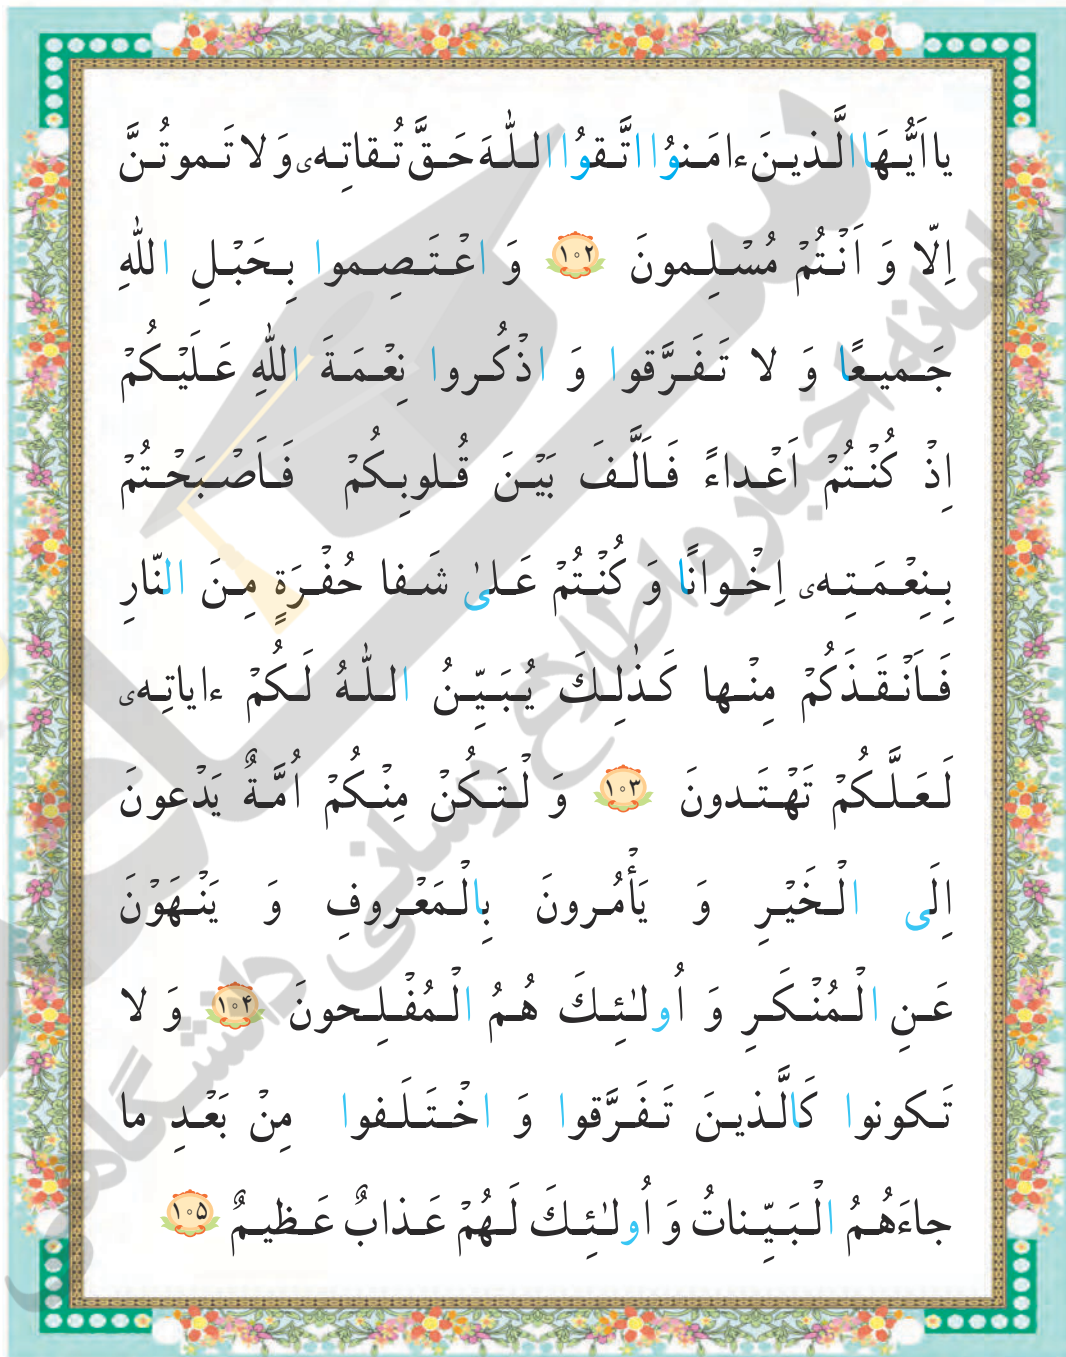 یا اَیُّهَا الَّذینَ ءامَنُوا اتَّقُوا اللّٰهَ حَقَّ تُقاتِهٖ وَ لا تَموتُنَّ
اِلّا وَ اَنْتُمْ مُسْلِمونَ ﴿۱۰۲﴾ وَ اعْتَصِموا بِحَبْلِ اللّٰهِ
جَمیعًا وَ لا تَفَرَّقوا وَ اذْکُروا نِعْمَةَ اللّٰهِ عَلَیْکُمْ
اِذْ کُنْتُمْ اَعْداءً فَاَلَّفَ بَیْنَ قُلوبِکُمْ فَاَصْبَحْتُمْ
بِنِعْمَتِهٖ اِخْوانًا وَ کُنْتُمْ عَلیٰ شَفا حُفْرَةٍ مِنَ النّارِ
فَاَنْقَذَکُمْ مِنْها کَذٰلِکَ یُبَیِّنُ اللّٰهُ لَکُمْ ءایاتِهٖ
لَعَلَّکُمْ تَهْتَدونَ ﴿۱۰۳﴾ وَ لْتَکُنْ مِنْکُمْ اُمَّةٌ یَدْعونَ
اِلَی الْخَیْرِ وَ یَأْمُرونَ بِالْمَعْروفِ وَ یَنْهَوْنَ
عَنِ الْمُنْکَرِ وَ اُولٰئِکَ هُمُ الْمُفْلِحونَ ﴿۱۰۴﴾ وَ لا
تَکونوا کَالَّذینَ تَفَرَّقوا وَ اخْتَلَفوا مِنْ بَعْدِ ما
جاءَهُمُ الْبَیِّناتُ وَ اُولٰئِکَ لَهُمْ عَذابٌ عَظیمٌ ﴿۱۰۵﴾